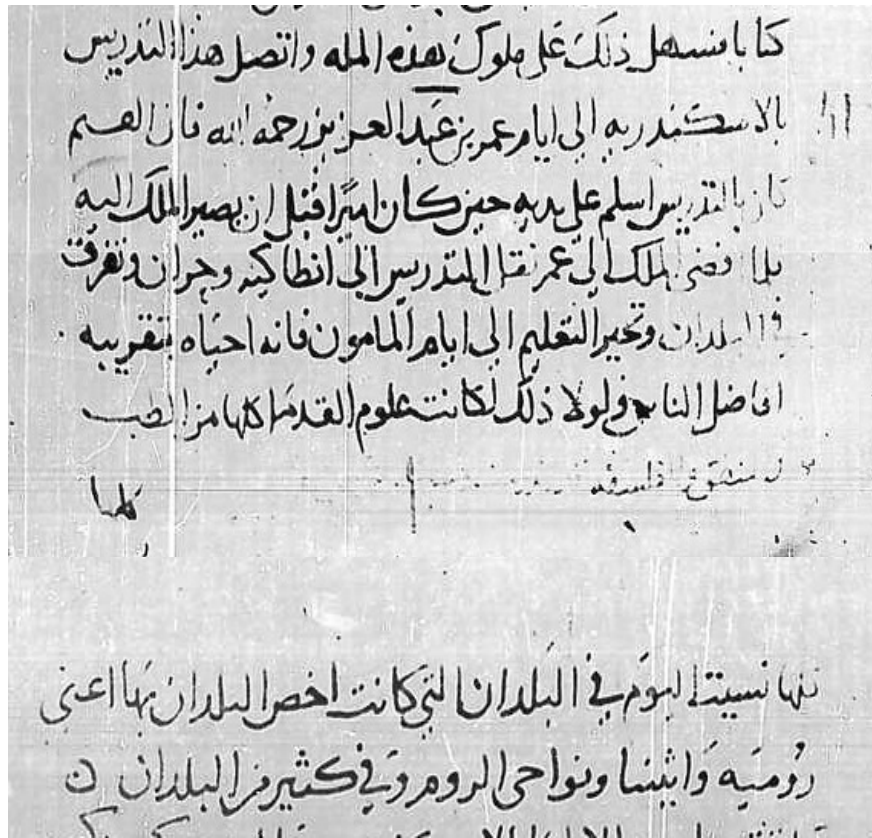 كتابا فسهل ذلك على ملوك هذه المله واتصل هذا التدريس
بالاسكندريه الي ايام عمر بن عبد العزيز رحمه الله فان القيم
كان بالتدريس اسلم علي يديه حين كان اميرا قبل ان يصير الملك اليه
فلما افضى الملك الي عمر نقل التدريس الي انطاكيه وحران وتفرق
في البلدان وتحير التعليم الي ايام المامون فانه احياه بتقريبه
افاضل الناس ولولا ذلك لكانت علوم القدما كلها من الطب
والمنطق والفلسفه
كلها
نسيت اليوم في البلدان التي كانت اخص البلدان بها اعني
روميه واثينيا ونواحي الروم وفي كثير من البلدان